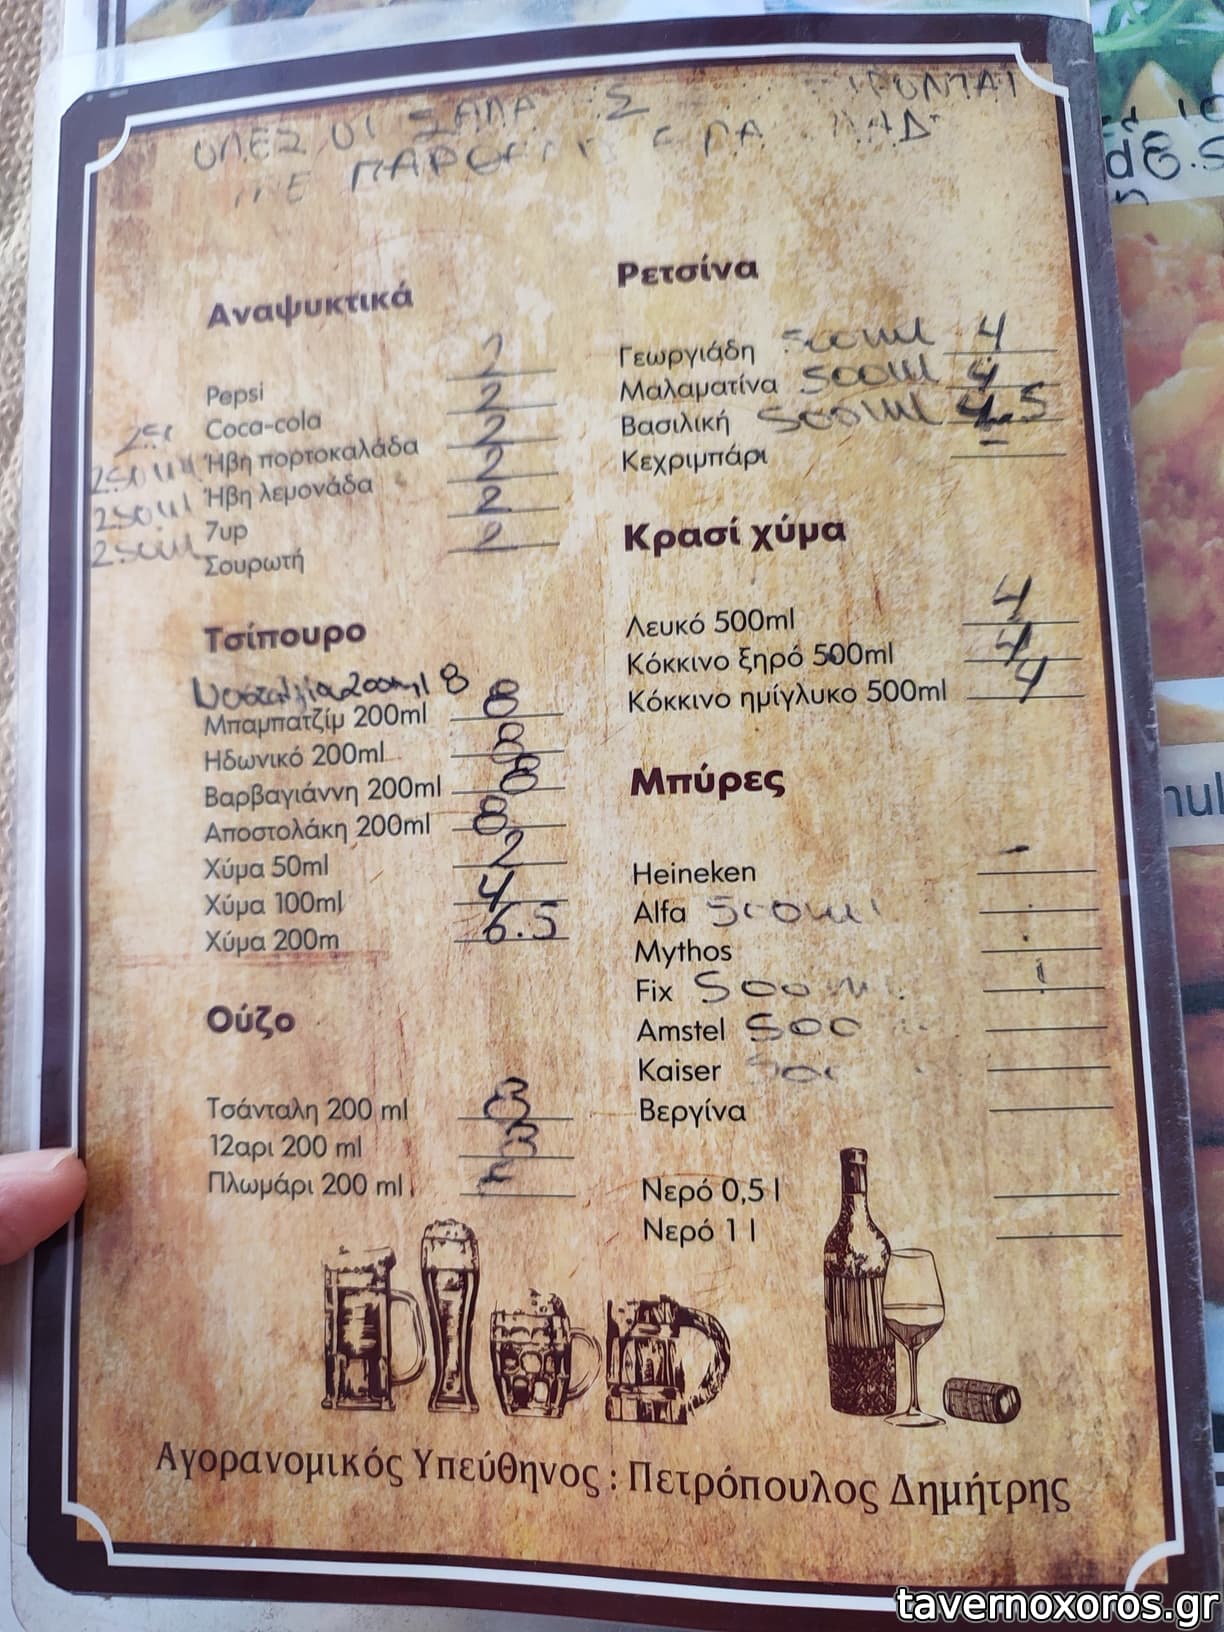 ΟΛΕΣ ΟΙ ΣΑΛΑ
ΜΕ ΠΑΡΘΕΝΟ
Αναψυκτικά
Pepsi 2
Coca-cola 2
Ήβη πορτοκαλάδα 2
250ml Ήβη λεμονάδα 2
250ml 7up 2
250ml Σουρωτή 2
Τσίπουρο
200ml 8
Μπαμπατζίμ 200ml 8
Ηδωνικό 200ml 8
Βαρβαγιάννη 200ml 8
Αποστολάκη 200ml 8
Χύμα 50ml 2
Χύμα 100ml 4
Χύμα 200m 6.5
Ούζο
Τσάνταλη 200 ml 8
12αρι 200 ml 8
Πλωμάρι 200 ml
Ρετσίνα
Γεωργιάδη 500ml 4
Μαλαματίνα 500ml 4
Βασιλική 500ml 4.5
Κεχριμπάρι
Κρασί χύμα
Λευκό 500ml 4
Κόκκινο ξηρό 500ml 4
Κόκκινο ημίγλυκο 500ml 4
Μπύρες
Heineken
Alfa 500ml
Mythos
Fix 500ml
Amstel 500
Kaiser
Βεργίνα
Νερό 0,5 l
Νερό 1 l
Αγορανομικός Υπεύθηνος : Πετρόπουλος Δημήτρης
tavernoxoros.gr